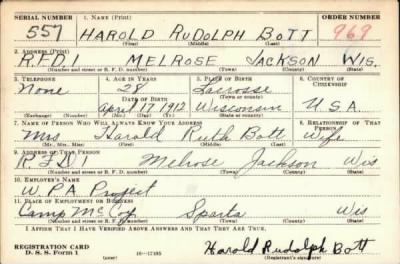 SERIAL NUMBER 1. NAME (Print) ORDER NUMBER
557 HAROLD RUDOLPH BOTT 969
(First) (Middle) (Last)
2. ADDRESS (Print)
R.F.D.1 MELROSE JACKSON WIS.
(Number and street or R. F. D. number) (Town) (County) (State)
3. TELEPHONE 4. AGE IN YEARS 5. PLACE OF BIRTH 6. COUNTRY OF CITIZENSHIP
None 28 Lacrosse
DATE OF BIRTH (Town or county)
April 17 1912 Wisconsin U.S.A.
(Exchange) (Number) (Mo.) (Day) (Yr.) (State or country)
7. NAME OF PERSON WHO WILL ALWAYS KNOW YOUR ADDRESS 8. RELATIONSHIP OF THAT PERSON
Mrs Harold Ruth Bott Wife
(Mr., Mrs., Miss) (First) (Middle) (Last)
9. ADDRESS OF THAT PERSON
R F D 1 Melrose Jackson Wis
(Number and street or R. F. D. number) (Town) (County) (State)
10. EMPLOYER'S NAME
W.P.A. Project
11. PLACE OF EMPLOYMENT OR BUSINESS
Camp McCoy Sparta Wis
(Number and street or R. F. D. number) (Town) (County) (State)
I AFFIRM THAT I HAVE VERIFIED ABOVE ANSWERS AND THAT THEY ARE TRUE.
REGISTRATION CARD
D. S. S. Form 1 (over) 16—17105 Harold Rudolph Bott
(Registrant's signature)